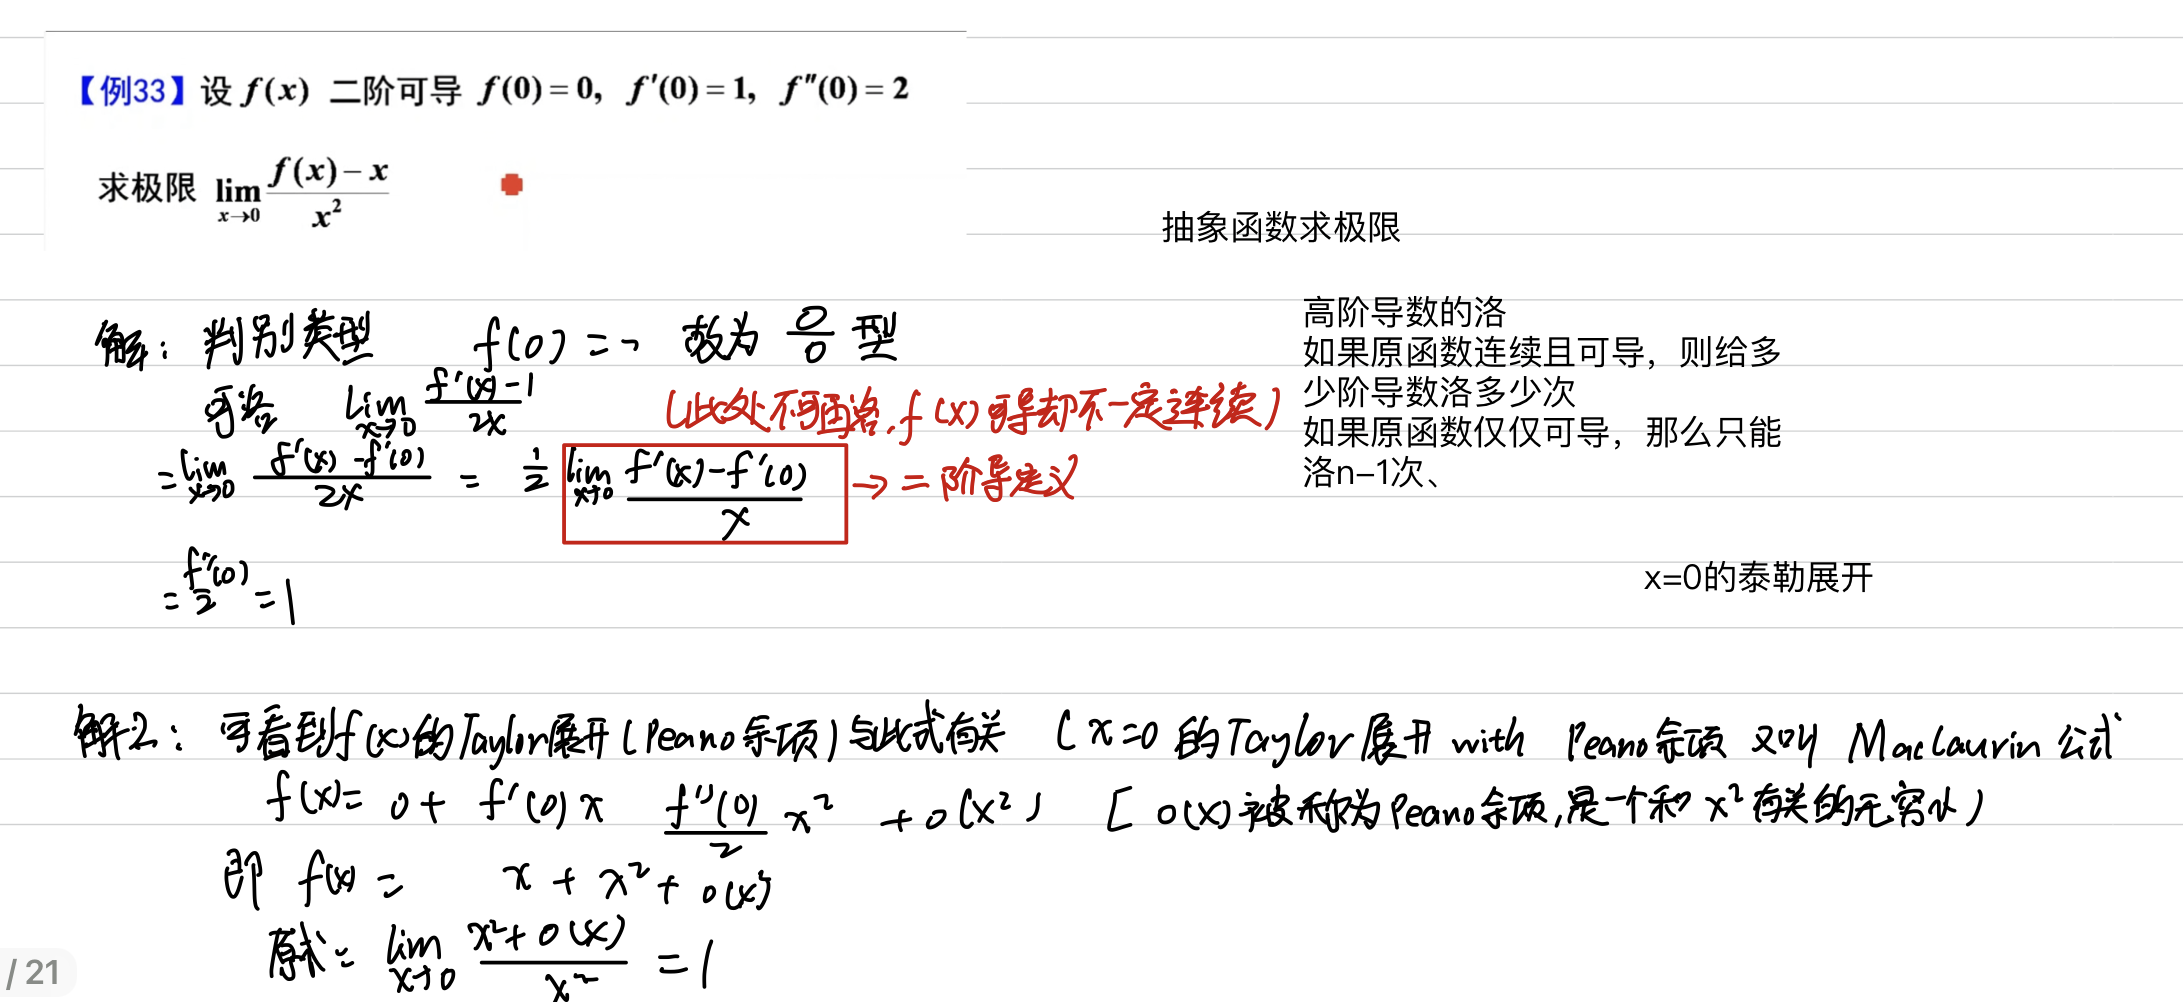 【例33】设 f(x) 二阶可导 f(0)=0, f′(0)=1, f″(0)=2
求极限 lim x→0 (f(x)−x)/x²
抽象函数求极限
高阶导数的洛
如果原函数连续且可导，则给多
少阶导数洛多少次
如果原函数仅仅可导，那么只能
洛n-1次、
解：判别类型 f(0)= 故为 0/0 型
可洛 lim x→0 (f′(x)-1)/2x (此处不可再洛,f(x)可导却不一定连续)
= lim x→0 (f′(x)-f′(0))/2x = 1/2 lim x→0 (f′(x)-f′(0))/x → 二阶导定义
= f″(0)/2 = 1
x=0的泰勒展开
解2：可看到f(x)的Taylor展开(Peano余项)与此式有关 (x=0的Taylor展开 with Peano余项 又叫 Maclaurin 公式
f(x)= 0+ f′(0)x f″(0)/2 x² +o(x²) [ o(x)被称为Peano余项,是一个和x²有关的无穷小)
即 f(x)= x+x²+o(x²)
原式= lim x→0 (x²+o(x))/x² =1
/ 21